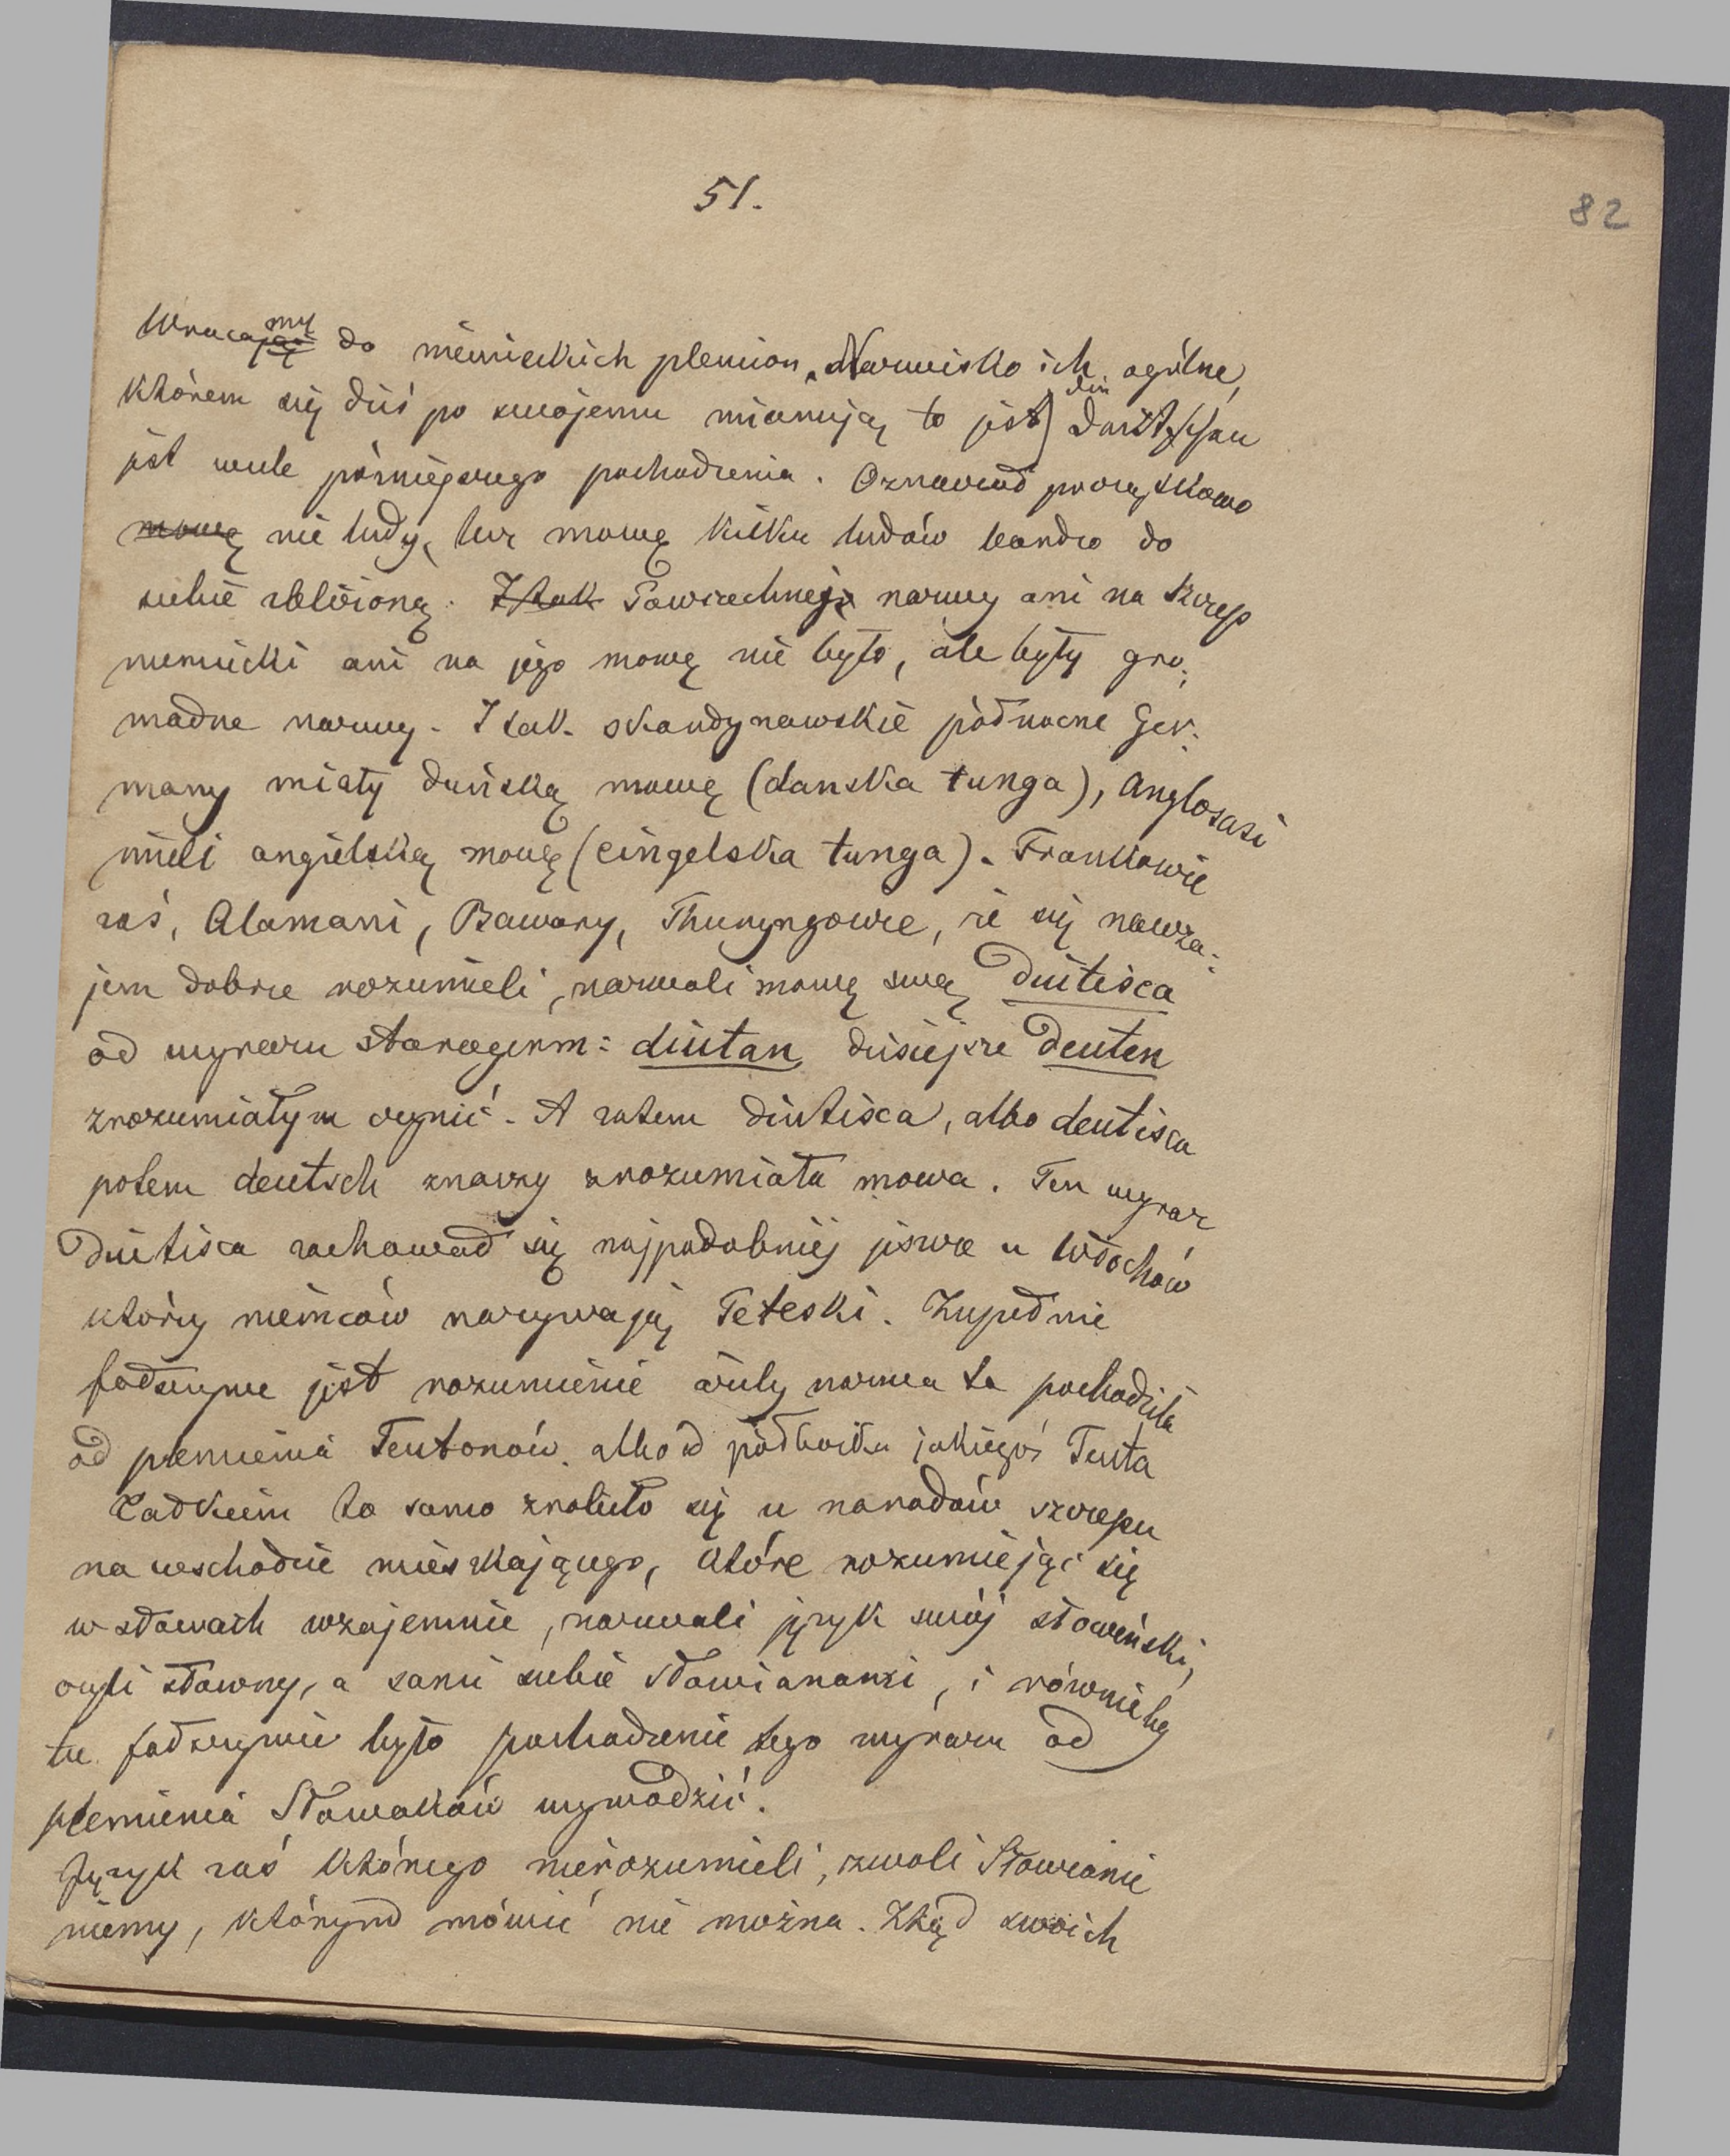 51.
82
Wracajmy do niemieckich plemion. Nazwisko ich ogólne,
którem się dziś po swojemu mianują to jest die Deutschen
jest wiele późniejszego pochodzenia. Oznaczał początkowo
mowę nie ludy, lecz mowę kilku ludów bardzo do
siebie zbliżoną. I tak Powszechnej nazwy ani na szczep
niemiecki ani na jego mowę nie było, ale były gro-
madne nazwy. I tak skandynawskie północne Ger-
many miały duńską mowę (danska tunga), Anglosasi
mieli angielską mowę (eingelska tunga). Frankowie
zaś, Alamani, Bawary, Thuryngowie, że się nawza-
jem dobrze rozumieli, nazwali mowę swą diutisca
od wyrazu starogerm: diutan dzisiejsze deuten
zrozumiałym czynić. A zatem diutisca, albo deutisca
potem deutsch znaczy zrozumiała mowa. Ten wyraz
diutisca zachował się najpodobniej jeszcze u Włochów
którzy niemców nazywają Teteski. Zupełnie
fałszywe jest rozumienie żeby nazwa ta pochodziła
od plemienia Teutonów albo od półbożka jakiegoś Teuta
Całkiem to samo znalazło się u narodów szczepu
na wschodzie mieszkającego, które rozumiejąc się
w słowach wzajemnie, nazwali język swój słowieński,
czyli sławny, a sami siebie Sławianami, i równie by
tu fałszywie było pochodzenie tego wyrazu od
plemienia Słowaków wywodzić.
Język zaś którego nierozumieli, zwali Sławianie
niemy, którym mówić nie można. Zkąd swoich